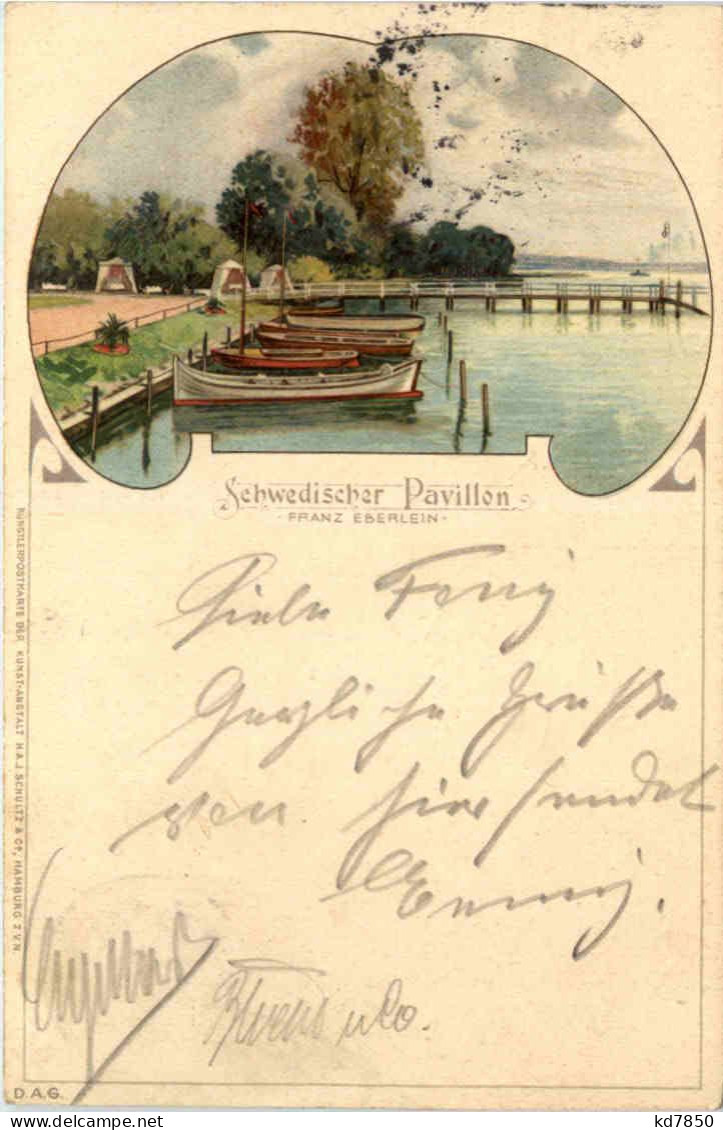 Schwedischer Pavillon
- FRANZ EBERLEIN -
KÜNSTLERPOSTKARTE DER KUNST-ANSTALT H.A.J. SCHULTZ & Co, HAMBURG Z.V.N.
Herzliche Grüße
von hier sendet
D.A.G.
www.delcampe.net
kd7850